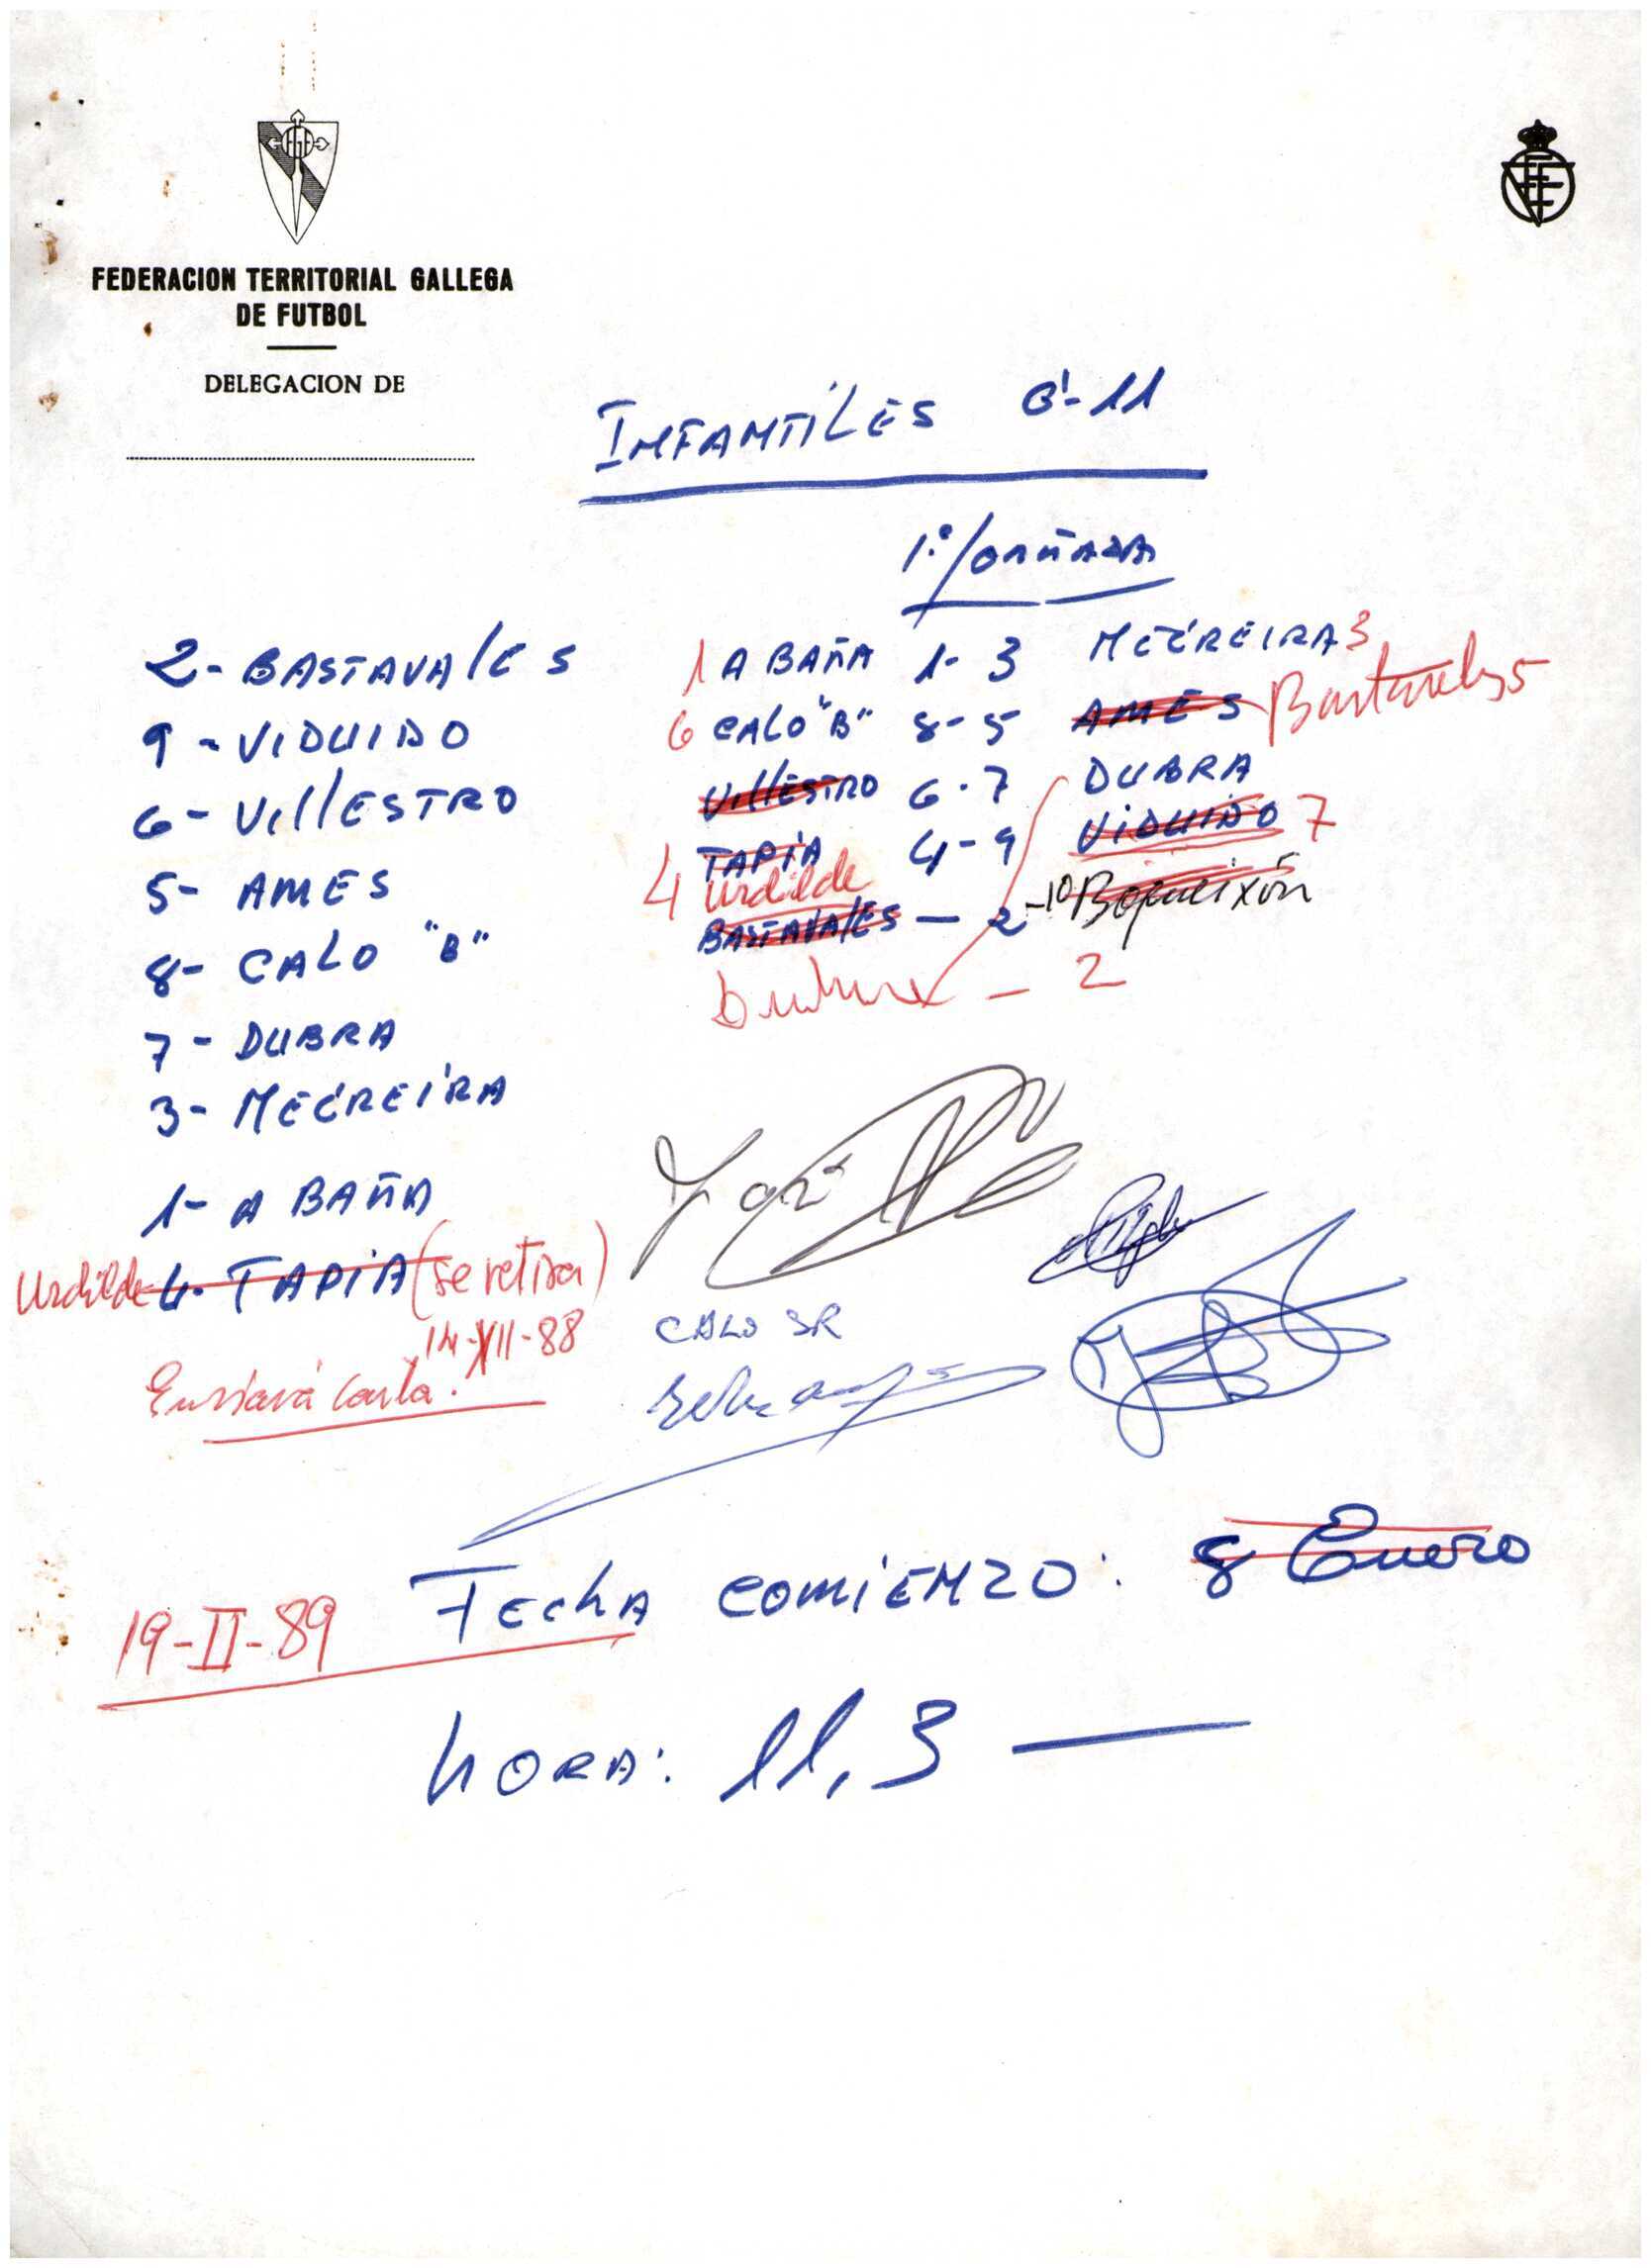 FEDERACION TERRITORIAL GALLEGA
DE FUTBOL
DELEGACION DE
INFANTILES G-11
1ª JORNADA
2- BASTAVALES
9 - VIDUIDO
6- VILLESTRO
5- AMES
8- CALO "B"
7- DUBRA
3- NEGREIRA
1- A BAÑA
Urdilde 4- TAPIA (se retira)
14-XII-88
Enviará carta.
1 A BAÑA 1-3 NEGREIRA 3
6 CALO "B" 8-5 AMES Bastavales 5
VILLESTRO 6-7 DUBRA
TAPIA 4-9 VIDUIDO 7
4 Urdilde
BASTAVALES - 2 -10 Boqueixón
Dubra - 2
CALO SR
Fecha COMIENZO: 8 Enero
19-II-89
HORA: 11,3